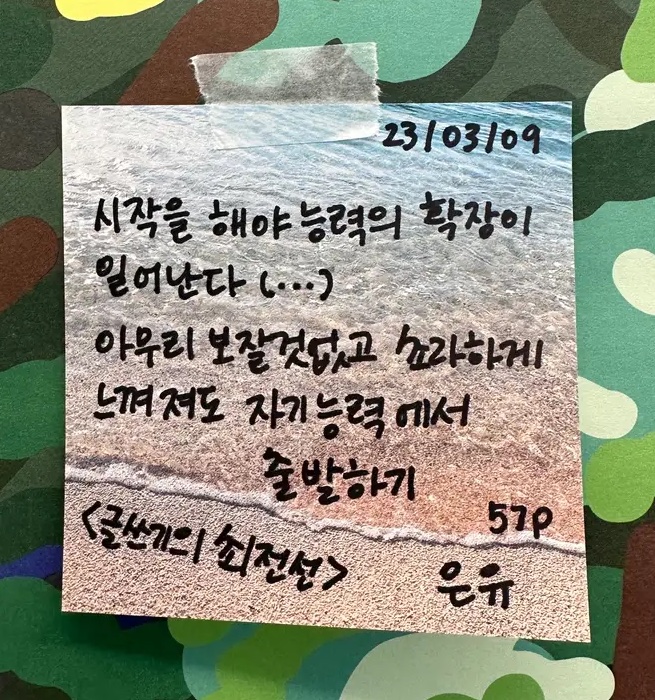 23/03/09
시작을 해야 능력의 확장이
일어난다 (...)
아무리 보잘것없고 쇼라하게
느껴져도 자기능력에서
출발하기
57p
<글쓰기의 최전선>
은유